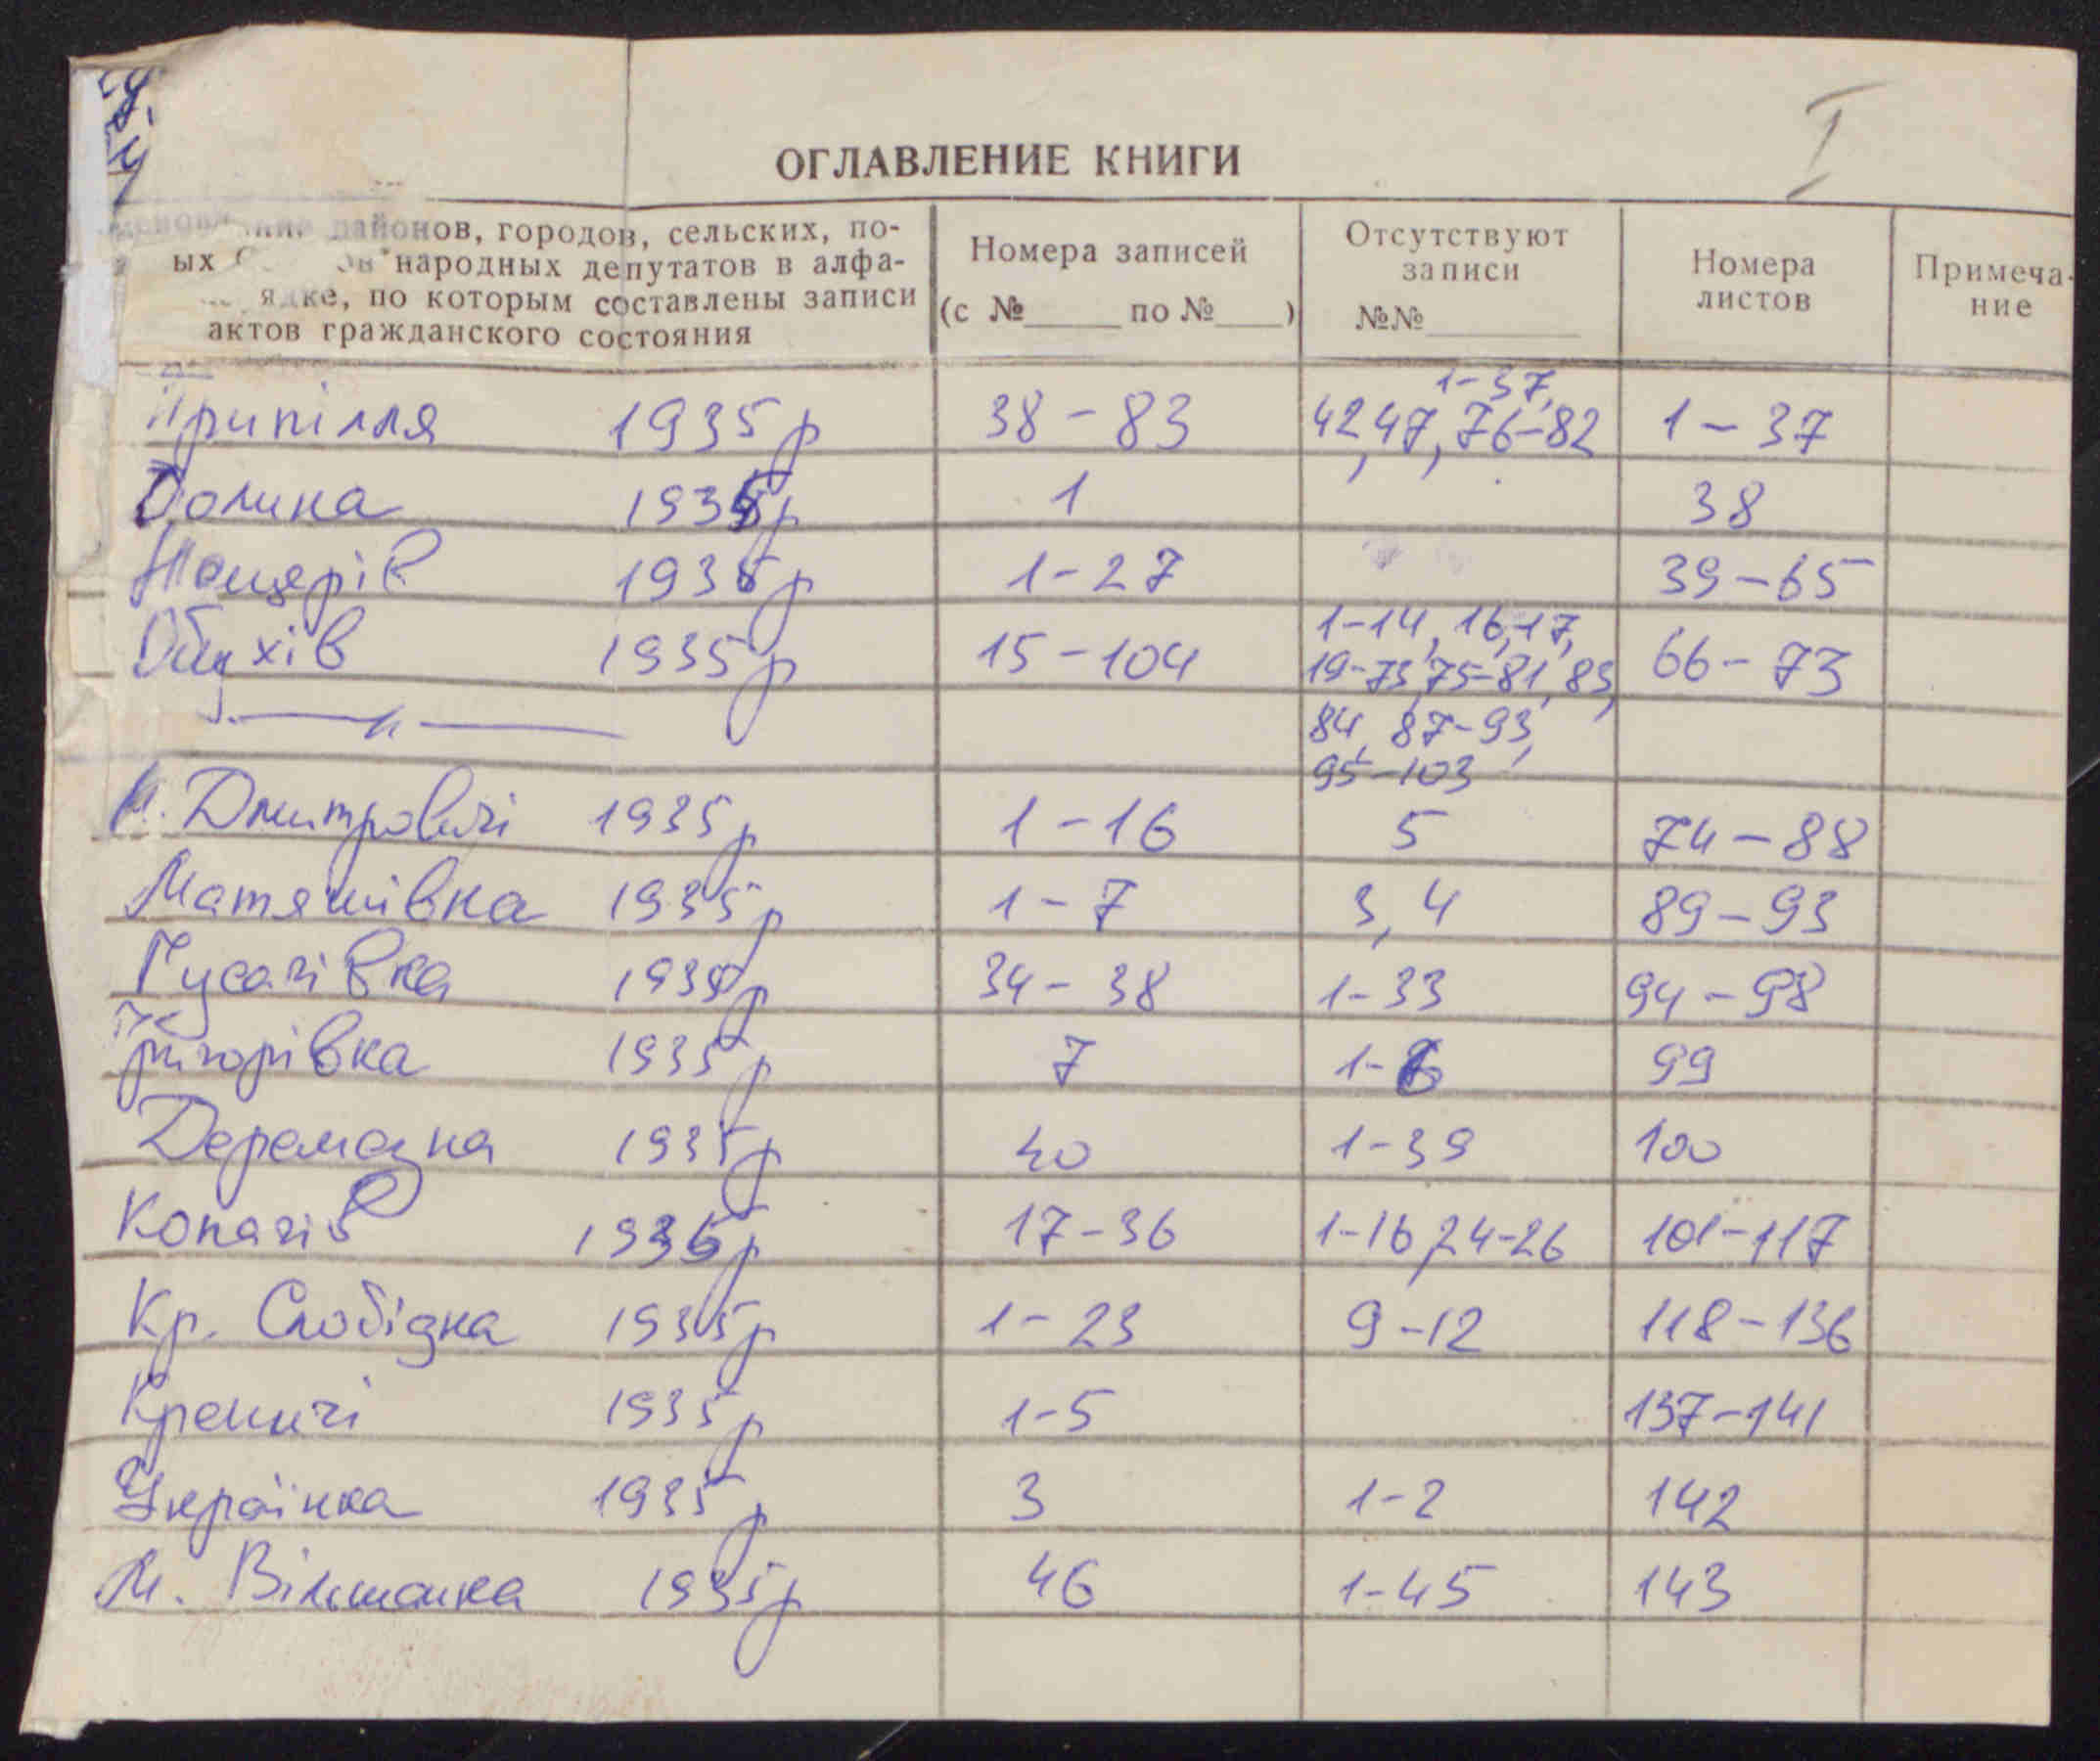 I
ОГЛАВЛЕНИЕ КНИГИ
районов, городов, сельских, по-
ых народных депутатов в алфа-
ядке, по которым составлены записи
актов гражданского состояния
Номера записей
(с № ____ по № ___)
Отсутствуют
записи
№№
Номера
листов
Примеча-
ние
1-37,
Трипілля 1935р 38-83 42,47,76-82 1-37
Долина 1935р 1 38
1935р 1-27 39-65
1-14, 16,17,
Обухів 1935р 15-104 19-73,75-81,83, 66-73
-"- 84, 87-93,
95-103
М. Дмитровичі 1935р 1-16 5 74-88
Матяшівка 1935р 1-7 3,4 89-93
Гусачівка 1935р 34-38 1-33 94-98
Григорівка 1935р 7 1-6 99
Деремезна 1935р 40 1-39 100
Копачів 1935р 17-36 1-16,24-26 101-117
Кр. Слобідка 1935р 1-23 9-12 118-136
Креничі 1935р 1-5 137-141
Українка 1935р 3 1-2 142
М. Вільшанка 1935р 46 1-45 143